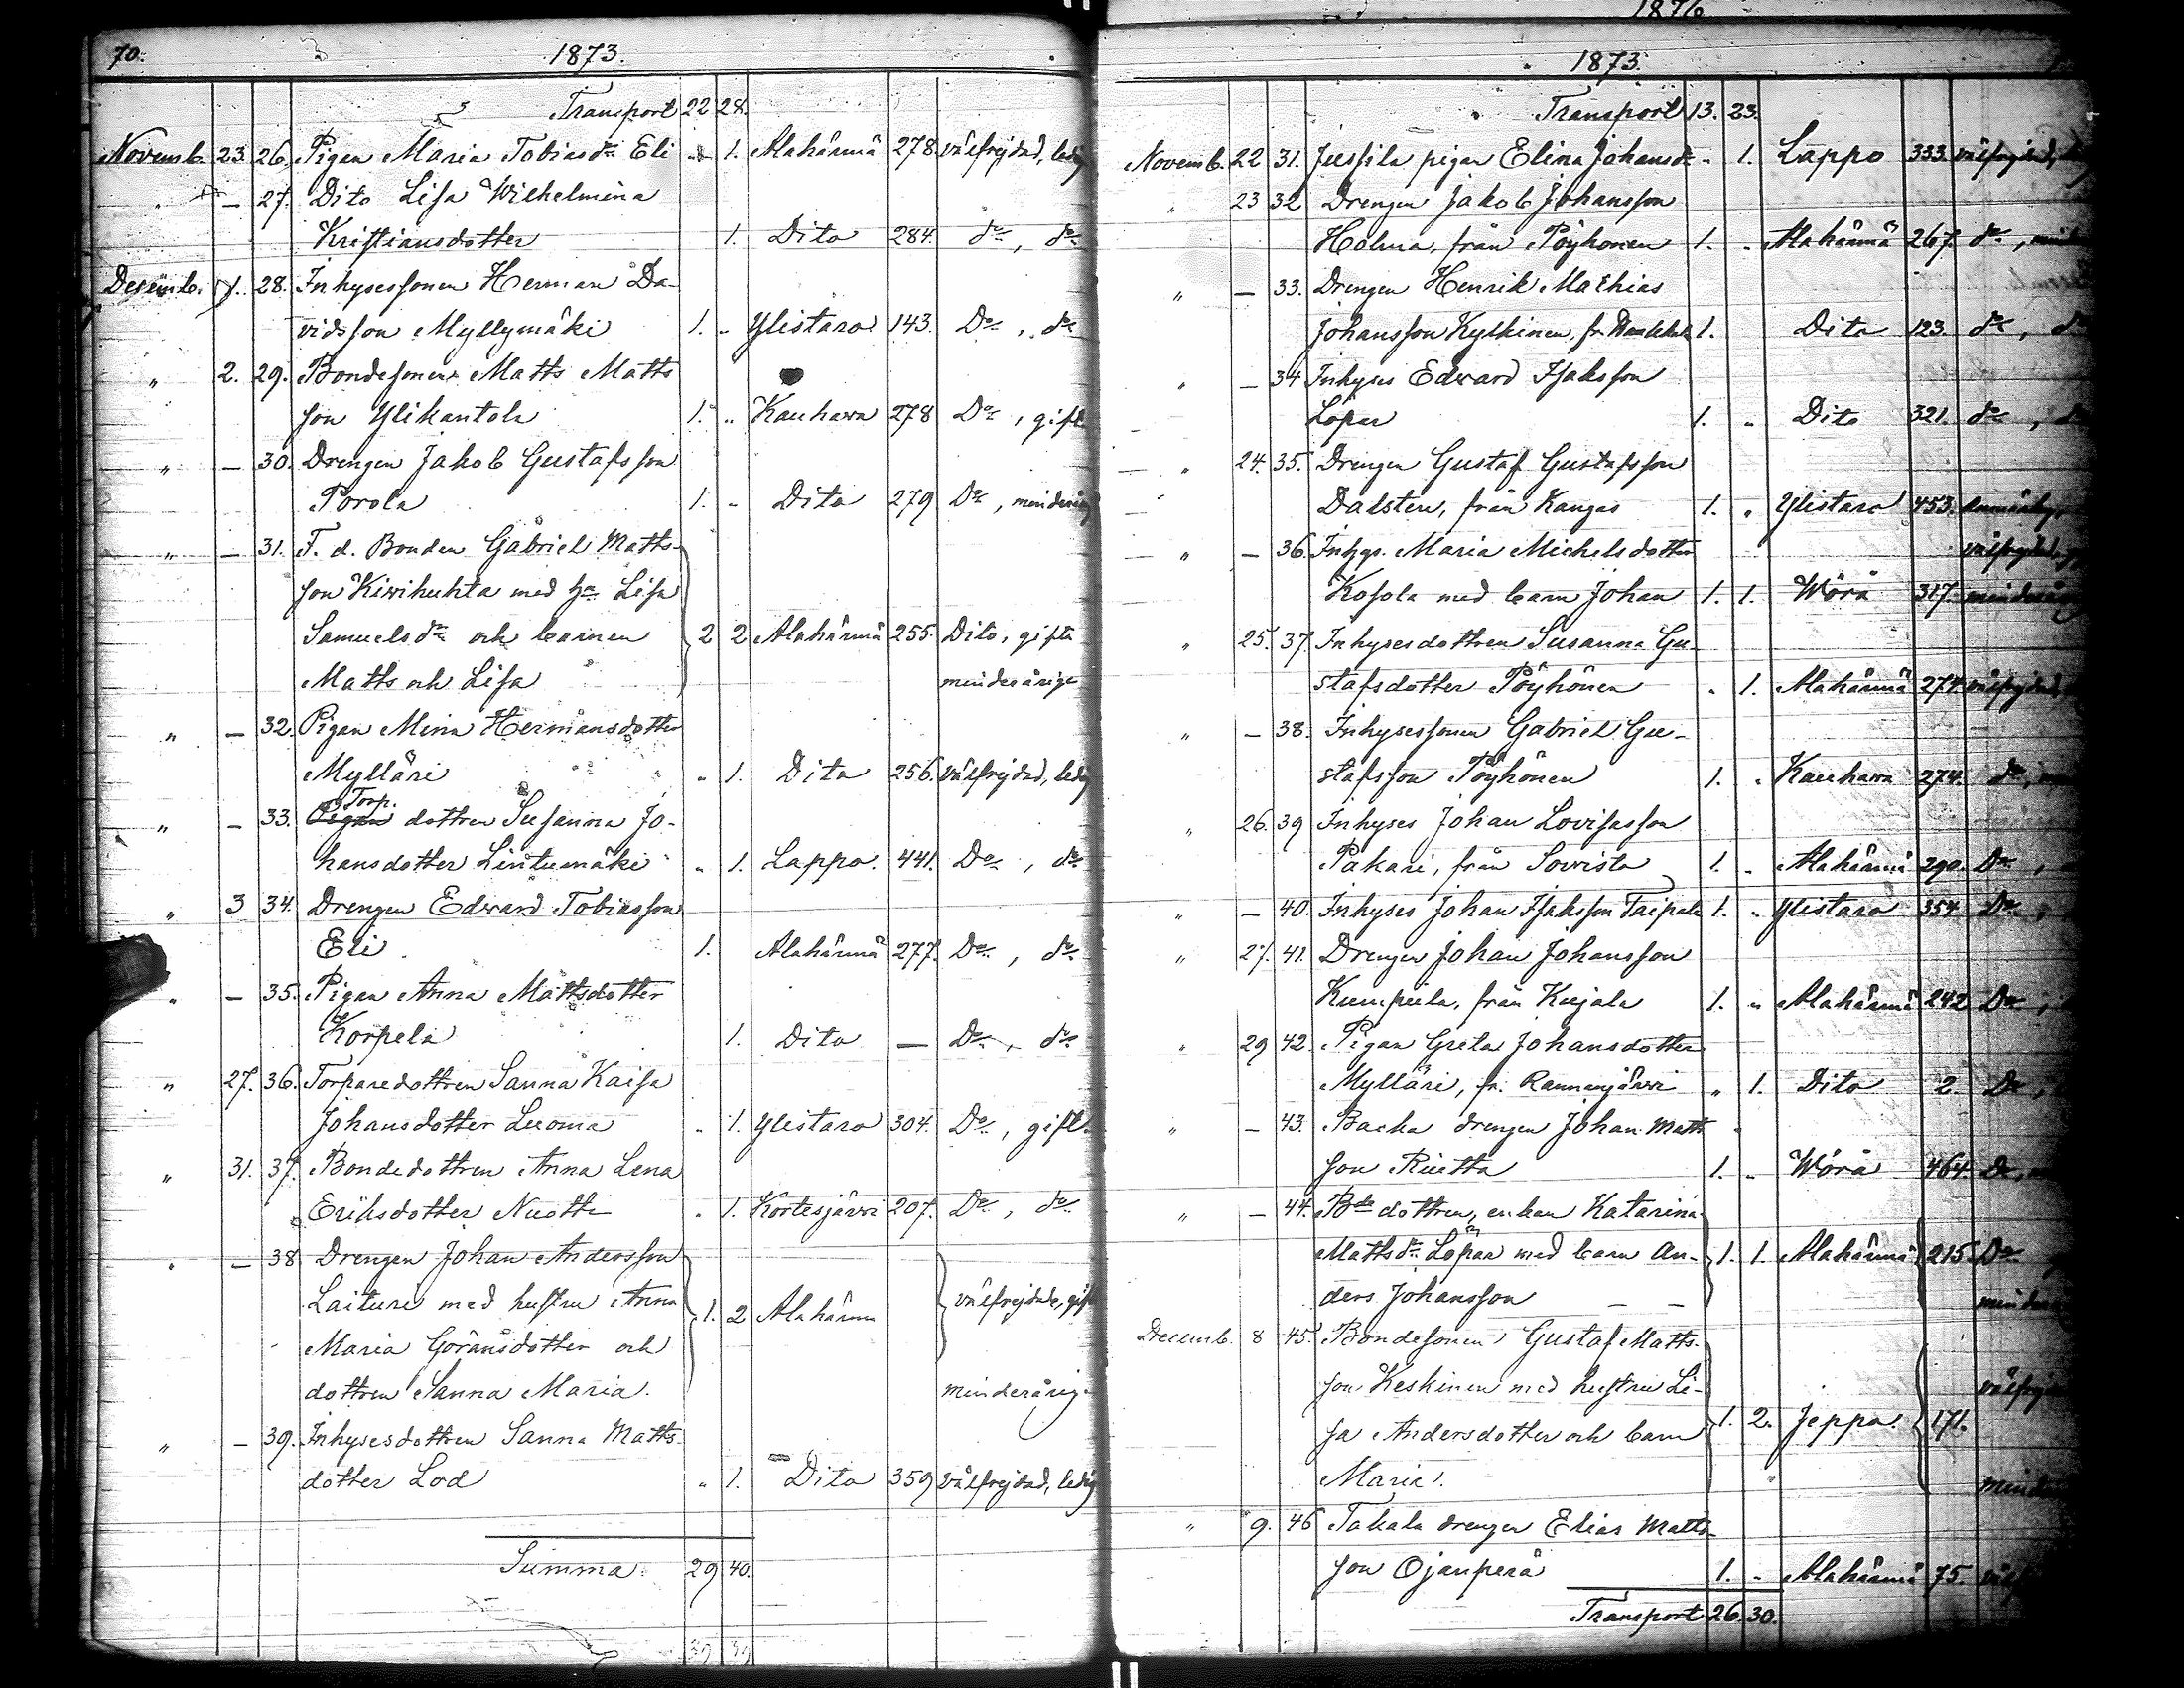 70.
1873.
Transport 22 28.
Novemb. 23. 26. Pigan Maria Tobiasdr Eli 1. Alahärmä 278 välfrejdad, ledig
" — 27. Dito Lisa Wilhelmina
Kristiansdotter 1. Dito 284. do, do
Decemb. 1. 28. Inhysessonen Herman Da-
vidsson Myllymäki 1. " Ylistaro 143. Do, do
" 2. 29. Bondesonen Matts Matts
son Ylikantola 1. " Kauhava 278 Do, gift
" — 30. Drengen Jakob Gustafsson
Porola 1. " Dito 279 Do, minderårig
" — 31. F. d. Bonden Gabriel Matts-
son Kiwihuhta med hu Lisa
Samuelsdr och barnen 2 2 Alahärmä 255. Dito, gifta
Matts och Lisa minderårige
" — 32. Pigan Mina Hermansdotter
Mylläri " 1. Dito 256. välfrejdad, ledig
Torp.
" — 33. Pigan dottren Susanna Jo-
hansdotter Lintumäki " 1. Lappo. 441. Do, do
" 3 34. Drengen Edward Tobiasson
Eli 1. Alahärmä 277. Do, do
" — 35. Pigan Anna Mattsdotter
Korpela 1. Dito — Do, do
" 27. 36. Torparedottren Sanna Kaisa
Johansdotter Luoma " 1. Ylistaro 304. Do, gift.
" 31. 37. Bondedottren Anna Lena
Eriksdotter Nuotti " 1. Kortesjärvi 207. Do, do
" — 38 Drengen Johan Andersson
Laituri med hustru Anna 1. 2 Alahärm välfrejdade, gifta
Maria Göransdotter och
dottren Sanna Maria. minderårig
" — 39. Inhysesdottren Sanna Matts-
dotter Lod " 1. Dito 359 välfrejdad, ledig
Summa 29 40.
39 39
1876
1873.
Transport 13. 23.
Novemb. 22 31. Jussila pigan Elina Johansdr " 1. Lappo 333. välfrejdad,
" 23 32 Drengen Jakob Johansson
Holma, från Pöyhönen 1. " Alahärmä 267. do,
" — 33. Drengen Henrik Mathias
Johansson Kykkinen, fr. 1. Dito 123. do,
" — 34 Inhyses Edward Isaksson
Lopar 1. " Dito 321. do,
" 24. 35. Drengen Gustaf Gustafsson
Dalsten, från Kangas 1. " Ylistaro 453.
" — 36. Inhys. Maria Michelsdotter välfrejdad,
Kosola med barn Johan 1. 1. Wörå 317. minderårig
" 25. 37. Inhysesdottren Susanna Gu-
stafsdotter Pöyhönen " 1. Alahärmä 274. välfrejdad,
" — 38. Inhysessonen Gabriel Gu-
stafsson Pöyhönen 1. " Kauhava 274. do,
" 26. 39 Inhyses Johan Lovisasson
Pakari, från Sorvista 1. " Alahärmä 290. Do
" — 40. Inhyses Johan Isaksson Taipale 1. " Ylistaro 354 Do
" 27. 41. Drengen Johan Johansson
Kumpula, från Kujala 1. " Alahärmä 242 Do,
" 29 42. Pigan Greta Johansdotter
Mylläri, fr. Rannanjärvi " 1. Dito 2. Do,
" — 43. Backa drengen Johan Matts
son Riutta 1. " Wörå 464. Do,
" — 44. Bde dottren, enkan Katarina
Mattsdr Lopar med barn An- 1. 1. Alahärmä 215. Do
ders Johansson — —
Decemb. 8 45. Bondesonen Gustaf Matts-
son Keskinen med hustru Li-
sa Andersdotter och barn 1. 2. Jeppo. 171.
Maria.
" 9. 46 Takala drengen Elias Matts-
son Ojanperä 1. " Alahärmä 75.
Transport 26. 30.